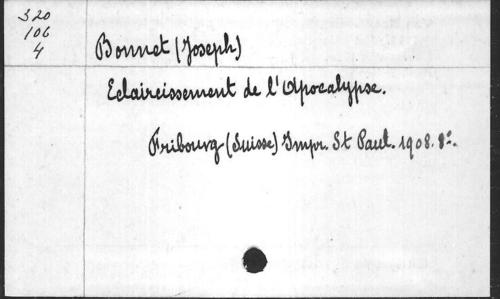 320
106
4
Bonnet (Joseph)
Eclaircissement de l'Apocalypse.
Fribourg (Suisse) Impr. St Paul. 1908. 8º.